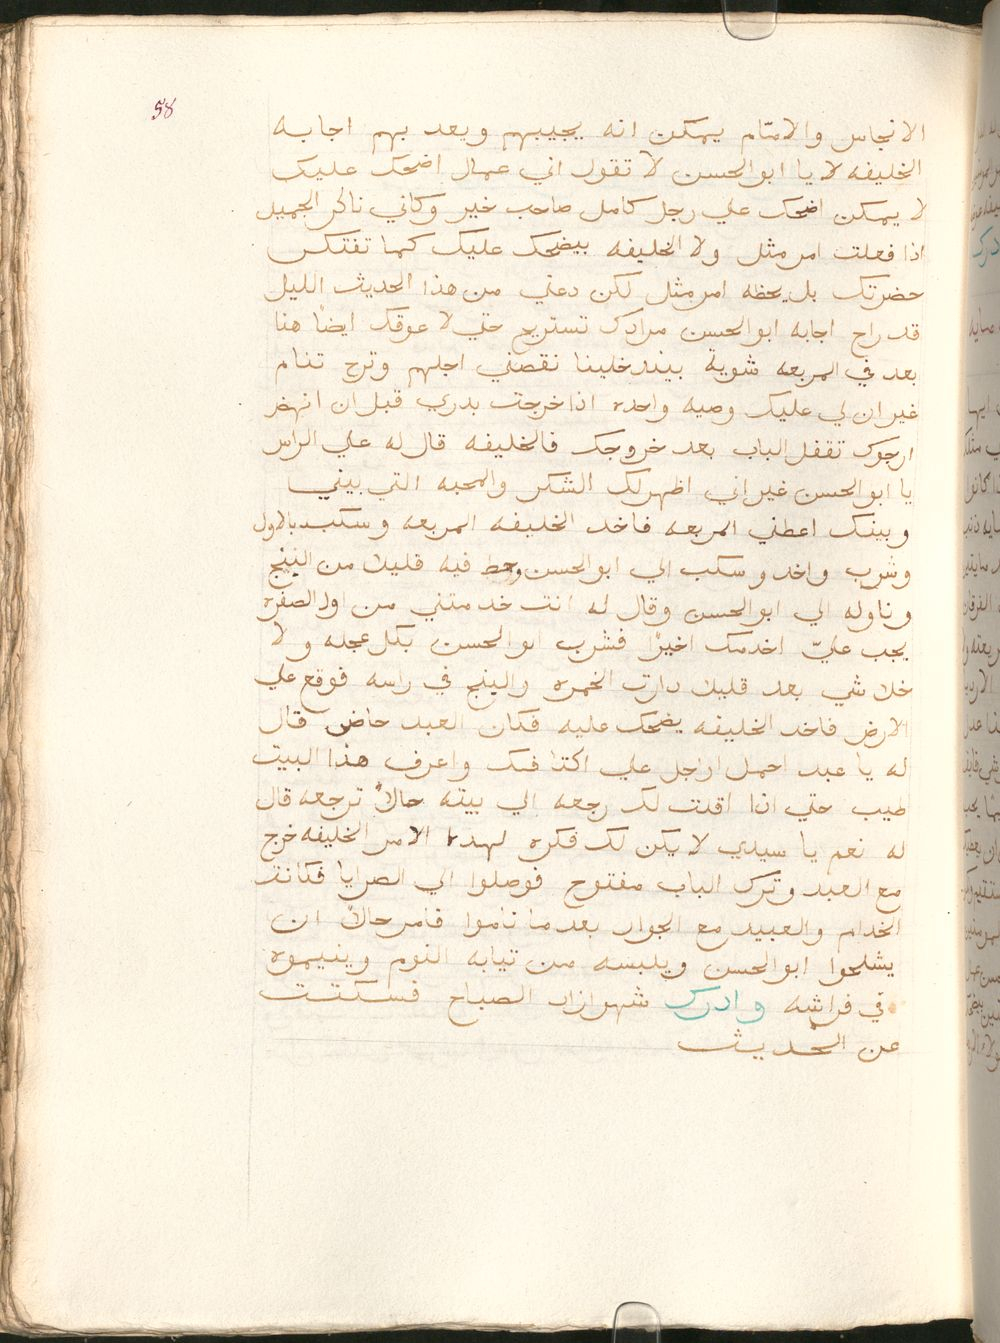 58
الانجاس والامتام يمكن انه يجيبهم ويعد بهم اجابه
الخليفه لا يا ابو الحسن لا تقول اني عمال اضحك عليك
لا يمكن اضحك علي رجل كامل صاحب خير وكاني ناكر الجميل
اذا فعلت امر مثل ولا الخليفه بيضحك عليك كما تفتكر
حضرتك بل يحظه امر مثل لكن دعني من هذا الحديث الليل
قد راح اجابه ابو الحسن مرادك تستريح حتي لا عوقك ايضًا هنا
بعد في المربعه شوية بيند خلينا نقضني اجلهم وترح تنام
غير ان لي عليك وصيه واحده اذا خرجت بدري قبل ان انهض
ارجوك تقفل الباب بعد خروجك فالخليفه قال له علي الراس
يا ابو الحسن غير اني اظهر لك الشكر والمحبه التي بيني
وبينك اعطني المربعه فاخد الخليفه المربعه وسكب بالاول
وشرب واخد وسكب الي ابو الحسن وحط فيه قليل من البنج
وناوله الي ابو الحسن وقال له انت خدمتني من اول الصفره
يجب عليّ اخدمك اخيرًا فشرب ابو الحسن بكل عجله ولا
خلا شي بعد قليل دارت الخمره والبنج في راسه فوقع علي
الارض فاخد الخليفه يضحك عليه فكان العبد حاضر قال
له يا عبد احمل ارجل علي اكتافك واعرف هذا البيت
طيب حتي اذا اقلت لك رجعه الي بيته حالاً ترجعه قال
له نعم يا سيدي لا يكن لك فكره لهدا الامر الخليفه خرج
مع العبد وترك الباب مفتوح فوصلوا الي الصرايا فكانت
الخدام والعبيد مع الجوار بعد ما ناموا فامر حالاً ان
يشلحوا ابو الحسن ويلبسه من تيابه النوم وينيموه
في فراشه وادرك شهرازاد الصباح فسكتت
عن الحديث